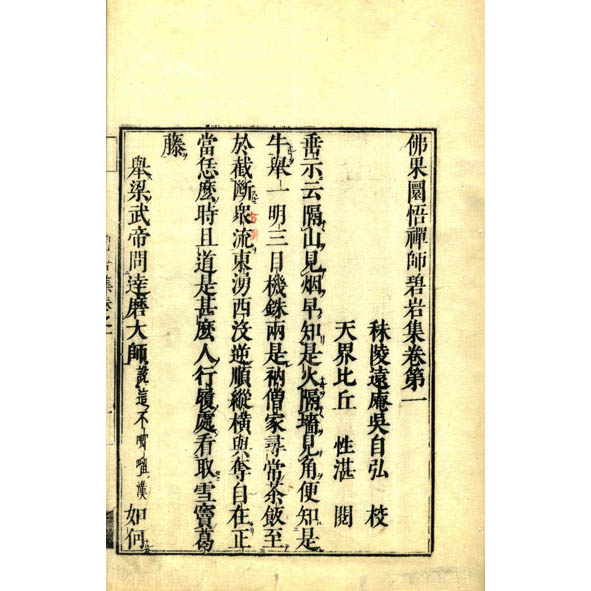 佛果圜悟禪師碧岩集卷第一
秣陵遠庵吳自弘 校
天界比丘 性湛 閱
垂示云隔山見烟早知是火隔墻見角便知是
牛舉一明三目機銖兩是衲僧家尋常茶飯至
於截斷衆流東湧西沒逆順縱橫與奪自在正
當恁麼時且道是甚麼人行履處看取雪竇葛
藤
舉梁武帝問達磨大師說這不唧𠺕漢如何